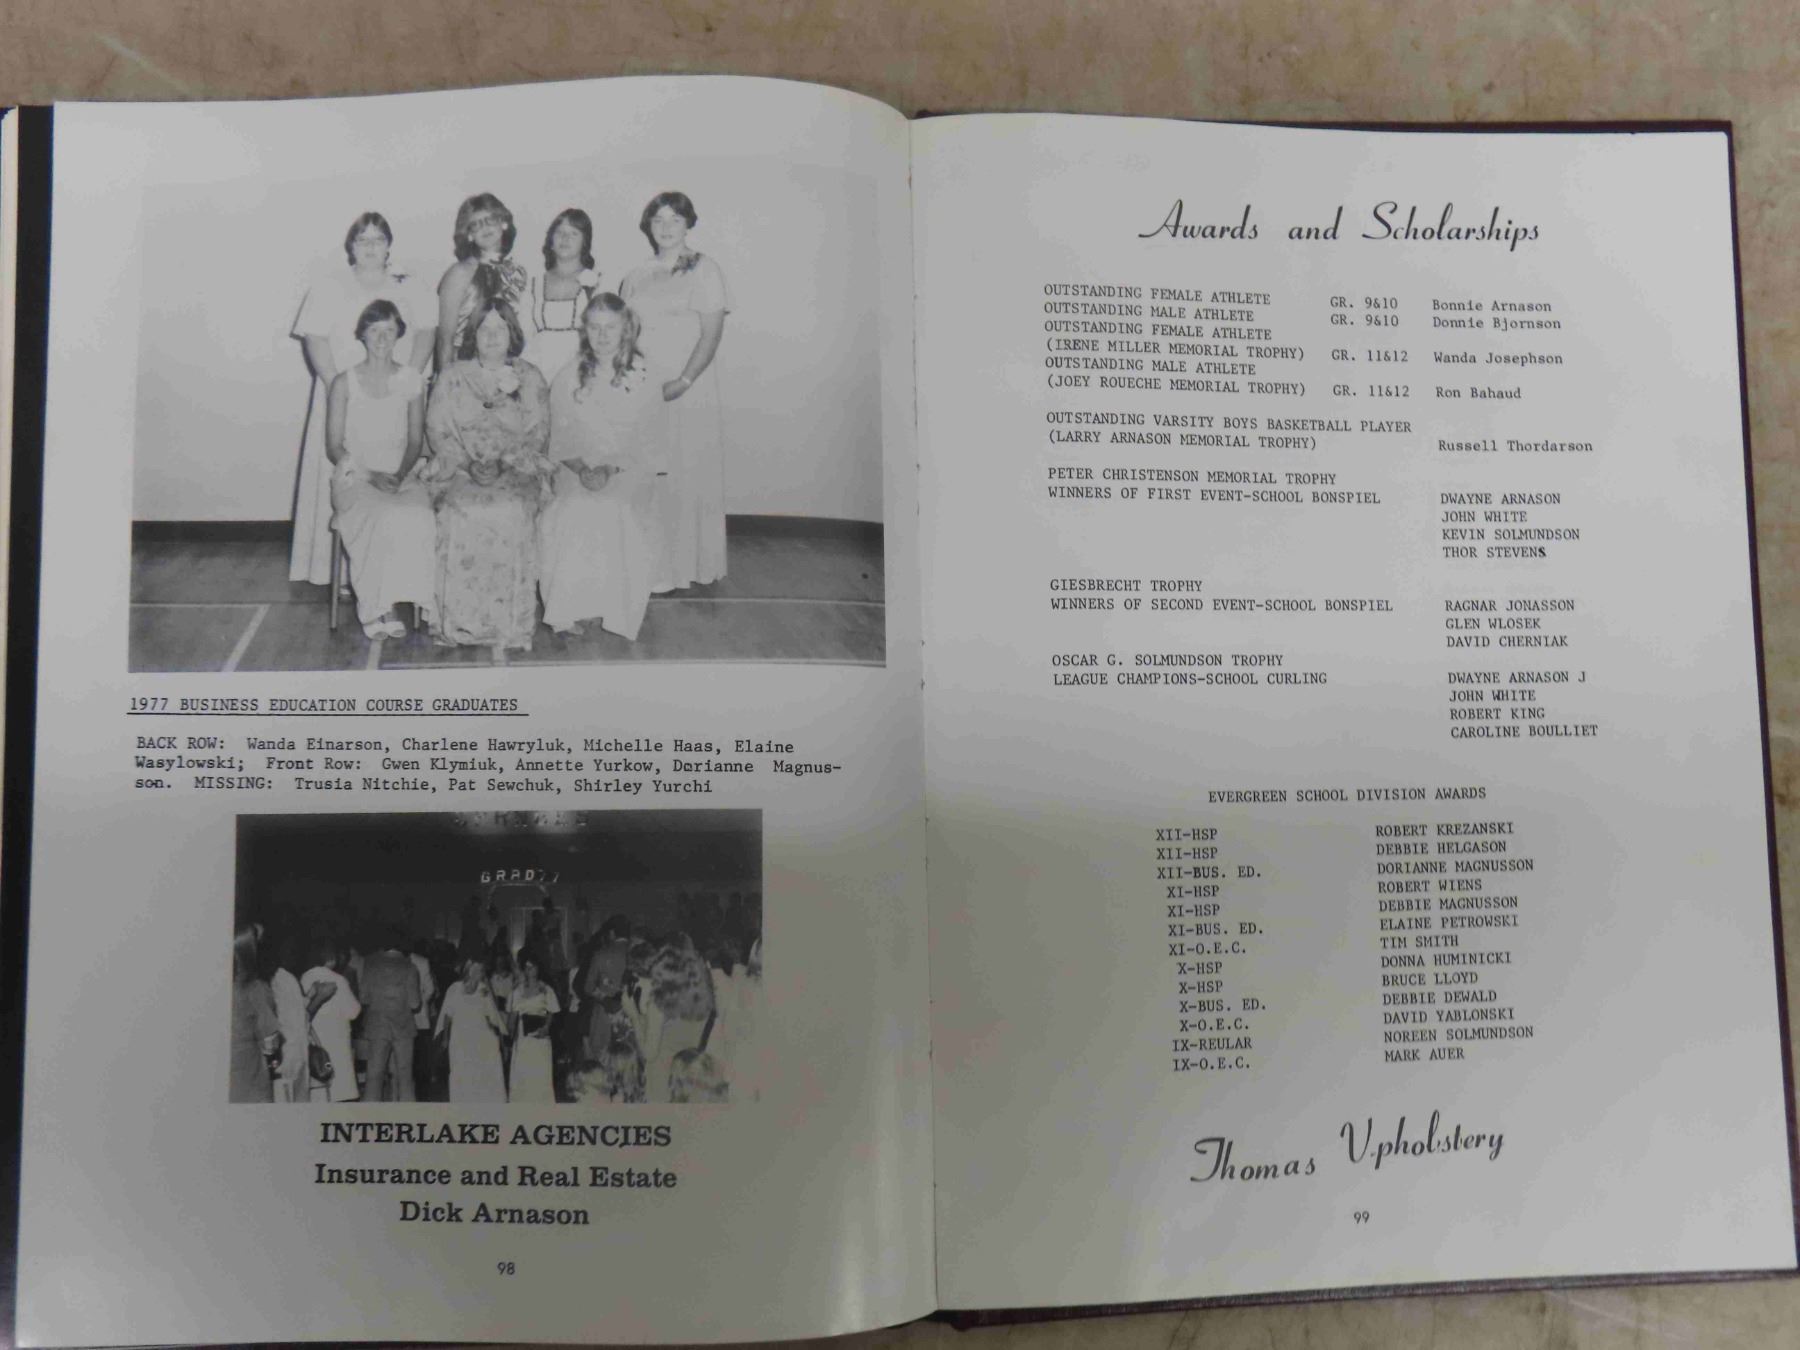 1977 BUSINESS EDUCATION COURSE GRADUATES
BACK ROW: Wanda Einarson, Charlene Hawryluk, Michelle Haas, Elaine
Wasylowski; Front Row: Gwen Klymiuk, Annette Yurkow, Dorianne Magnus-
son. MISSING: Trusia Nitchie, Pat Sewchuk, Shirley Yurchi
GRAD 77
INTERLAKE AGENCIES
Insurance and Real Estate
Dick Arnason
98
Awards and Scholarships
OUTSTANDING FEMALE ATHLETE GR. 9&10 Bonnie Arnason
OUTSTANDING MALE ATHLETE GR. 9&10 Donnie Bjornson
OUTSTANDING FEMALE ATHLETE
(IRENE MILLER MEMORIAL TROPHY) GR. 11&12 Wanda Josephson
OUTSTANDING MALE ATHLETE
(JOEY ROUECHE MEMORIAL TROPHY) GR. 11&12 Ron Bahaud
OUTSTANDING VARSITY BOYS BASKETBALL PLAYER
(LARRY ARNASON MEMORIAL TROPHY) Russell Thordarson
PETER CHRISTENSON MEMORIAL TROPHY
WINNERS OF FIRST EVENT-SCHOOL BONSPIEL DWAYNE ARNASON
JOHN WHITE
KEVIN SOLMUNDSON
THOR STEVENS
GIESBRECHT TROPHY
WINNERS OF SECOND EVENT-SCHOOL BONSPIEL RAGNAR JONASSON
GLEN WLOSEK
DAVID CHERNIAK
OSCAR G. SOLMUNDSON TROPHY
LEAGUE CHAMPIONS-SCHOOL CURLING DWAYNE ARNASON J
JOHN WHITE
ROBERT KING
CAROLINE BOULLIET
EVERGREEN SCHOOL DIVISION AWARDS
XII-HSP ROBERT KREZANSKI
XII-HSP DEBBIE HELGASON
XII-BUS. ED. DORIANNE MAGNUSSON
XI-HSP ROBERT WIENS
XI-HSP DEBBIE MAGNUSSON
XI-BUS. ED. ELAINE PETROWSKI
XI-O.E.C. TIM SMITH
X-HSP DONNA HUMINICKI
X-HSP BRUCE LLOYD
X-BUS. ED. DEBBIE DEWALD
X-O.E.C. DAVID YABLONSKI
IX-REULAR NOREEN SOLMUNDSON
IX-O.E.C. MARK AUER
Thomas Upholstery
99